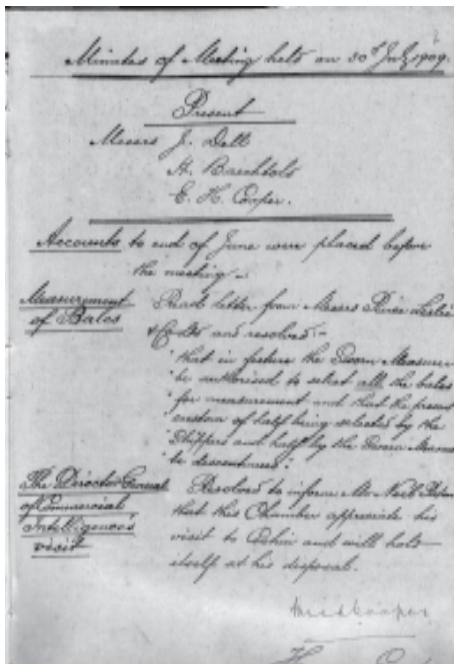 Minutes of Meeting held on 30th July 1909.
Present
Messrs J. Dell
H. Baechtold
E. H. Cooper.
Accounts to end of June were placed before
the meeting.
Measurement
of Bales
Read letter from Messrs Peirce Leslie
& Co Ltd and resolved:-
"that in future the Sworn Measurer
be authorised to select all the bales
for measurement and that the present
custom of half being selected by the
Shippers and half by the Sworn Measurer
be discontinued."
The Director General
of Commercial
Intelligence's
visit
Resolved to inform Mr Noel
that this Chamber appreciate his
visit to Cochin and will hold
itself at his disposal.
Cooper